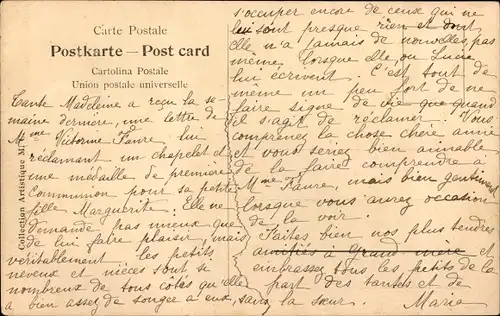 Carte Postale
Postkarte — Post card
Cartolina Postale
Union postale universelle
Collection Artistique
Tante Madeleine a reçu la se-
maine dernière, une lettre de
Mme Victorine Favre, lui
réclamant un chapelet et
une médaille de première
Communion pour sa petite
fille Marguerite. Elle ne
demande pas mieux que
de lui faire plaisir, mais
véritablement les petits
neveux et nièces sont si
nombreux de tous côtés qu'elle
a bien assez de songer à eux, sans
s'occuper encore de ceux qui ne
lui sont presque rien et dont
elle n'a jamais de nouvelles, pas
même lorsque elle ou Lucie
lui écrivent. C'est tout de
même un peu fort de ne
faire signe de vie que quand
il s'agit de réclamer. Vous
comprenez la chose chère amie
et vous seriez bien aimable
de la faire comprendre à
Mme Favre, mais bien gentiment
lorsque vous aurez occasion
de la voir.
Faites bien nos plus tendres
amitiés à Grand'mère et
embrassez tous les petits de la
part des tantes et de
la sœur. Marie